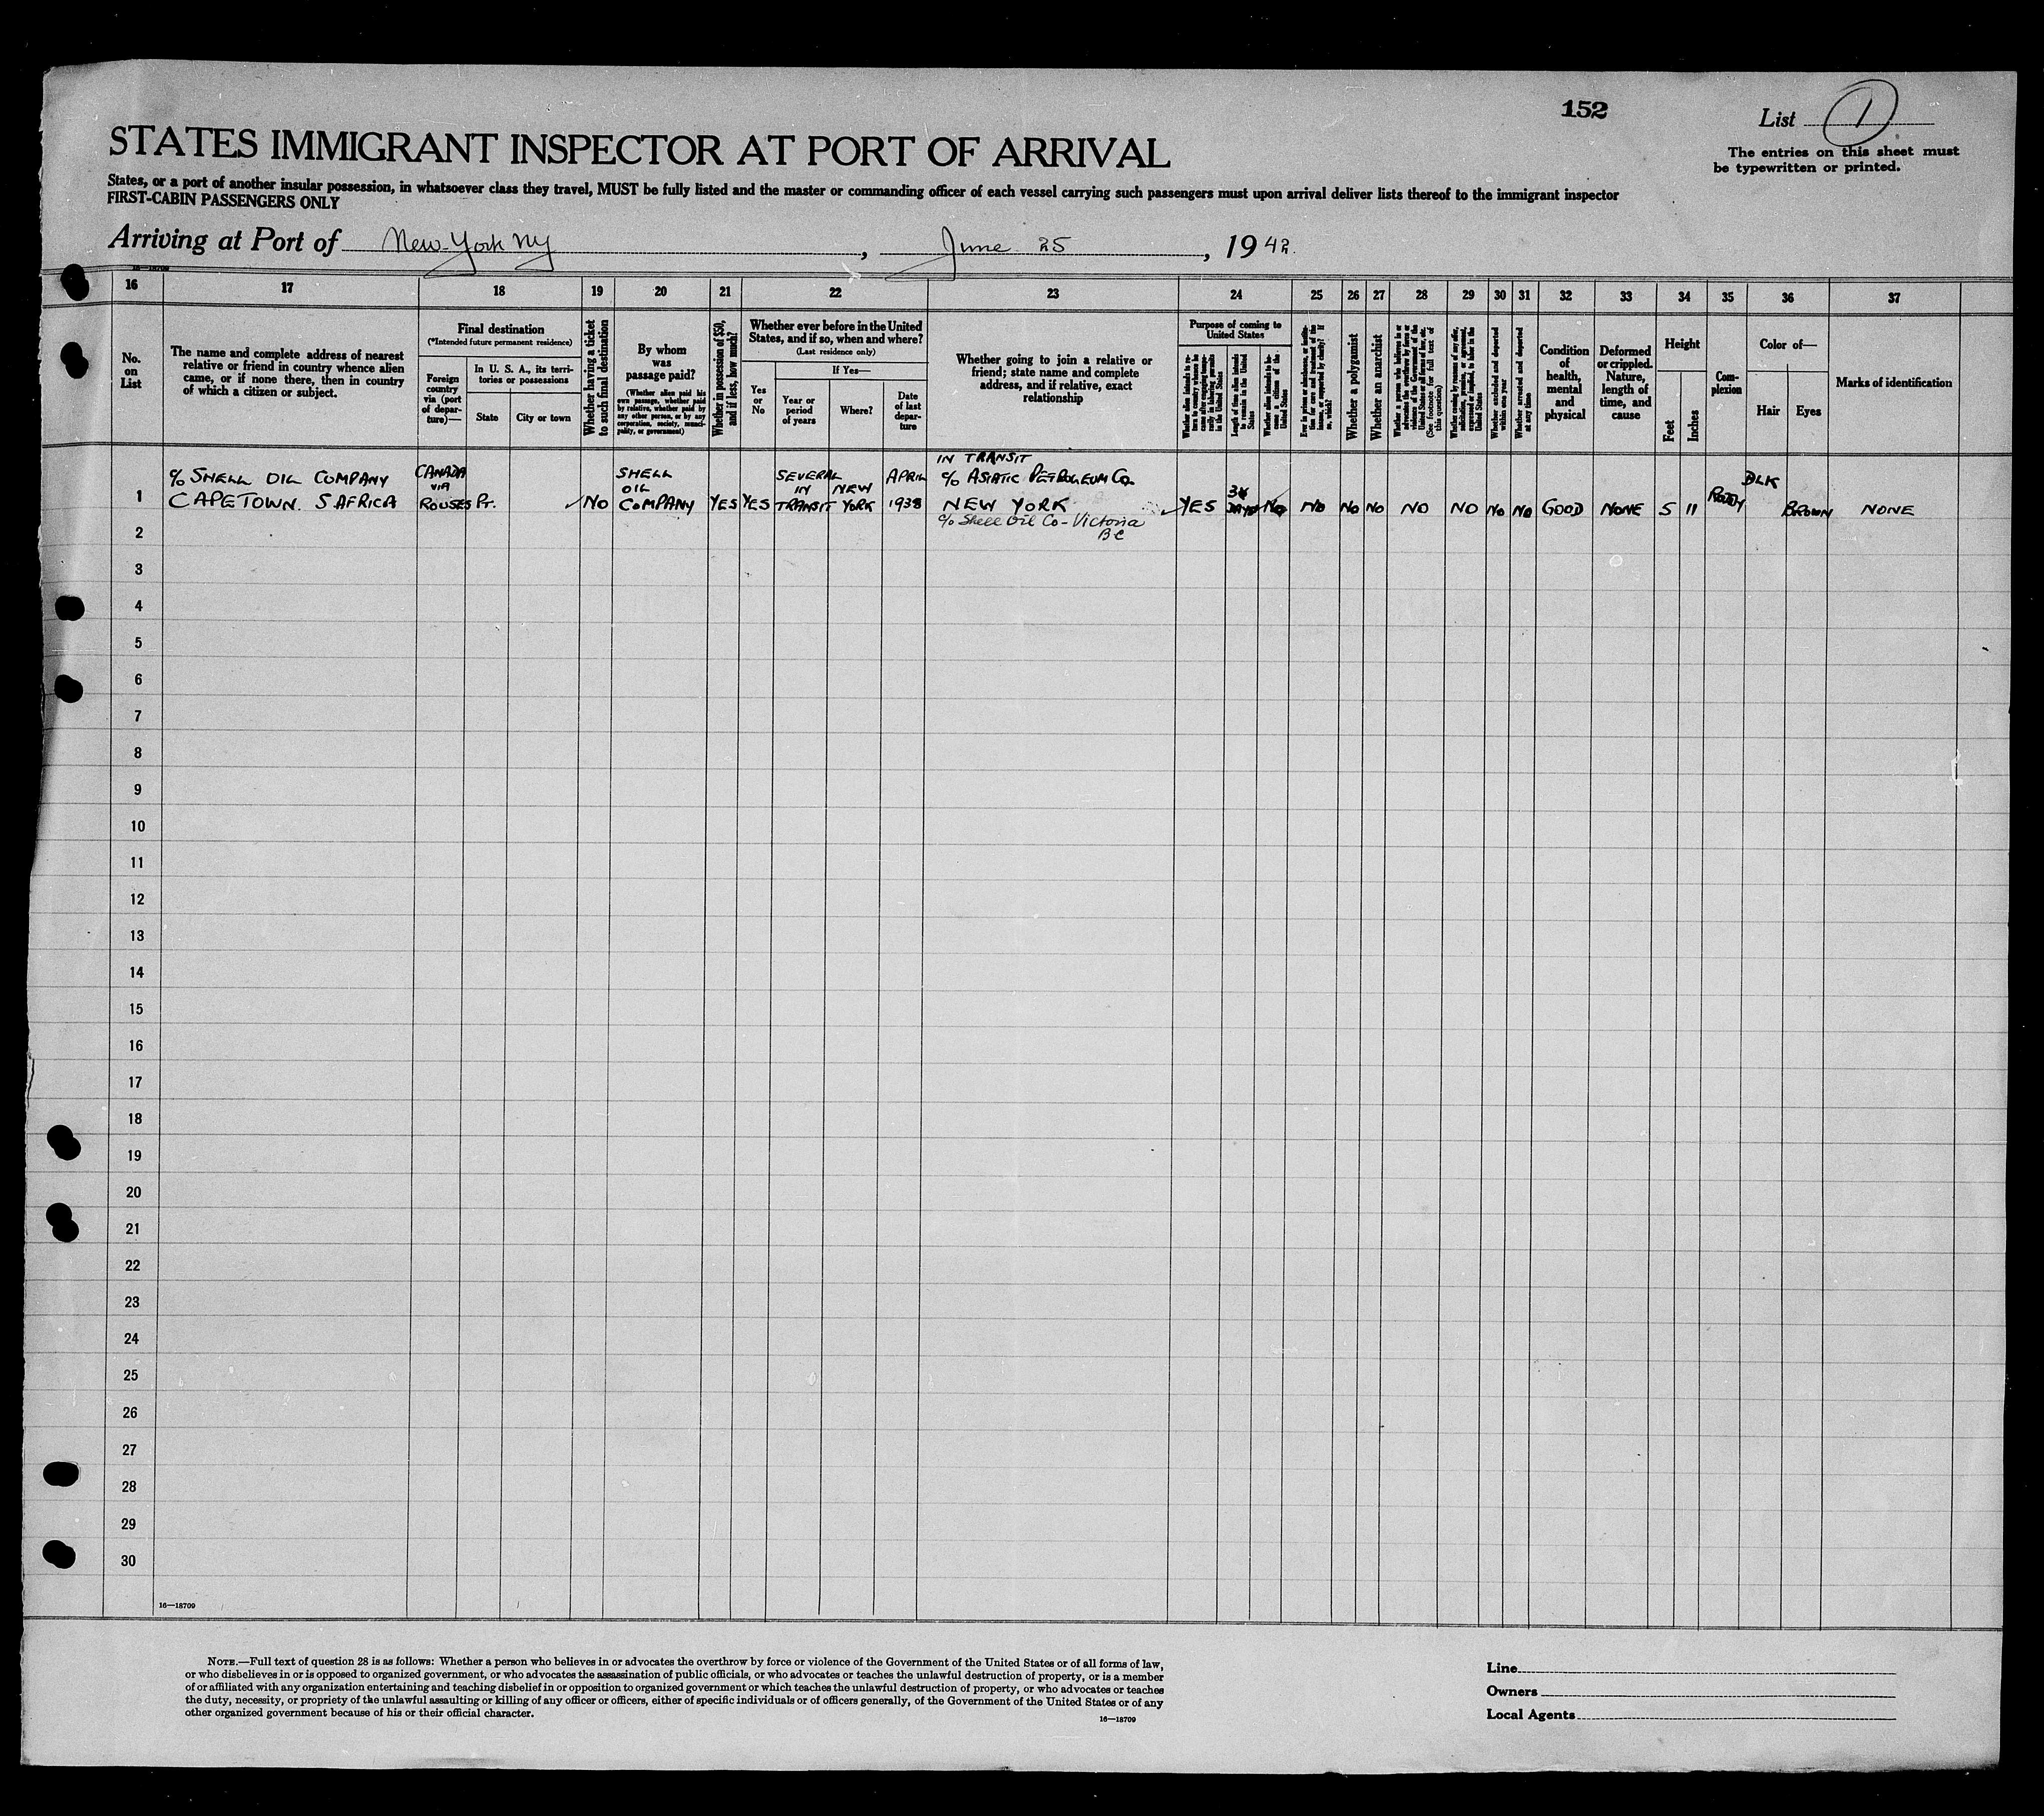 152
List 1
The entries on this sheet must
be typewritten or printed.
STATES IMMIGRANT INSPECTOR AT PORT OF ARRIVAL
States, or a port of another insular possession, in whatsoever class they travel, MUST be fully listed and the master or commanding officer of each vessel carrying such passengers must upon arrival deliver lists thereof to the immigrant inspector
FIRST-CABIN PASSENGERS ONLY
Arriving at Port of New York NY, June 25, 1942.
16—18709
16 17 18 19 20 21 22 23 24 25 26 27 28 29 30 31 32 33 34 35 36 37
No. on List
The name and complete address of nearest relative or friend in country whence alien came, or if none there, then in country of which a citizen or subject.
Final destination
(*Intended future permanent residence)
Foreign country via (port of departure)—
In U. S. A., its territories or possessions
State
City or town
Whether having a ticket to such final destination
By whom was passage paid?
(Whether alien paid his own passage, whether paid by relative, whether paid by any other person, or by any corporation, society, municipality, or government)
Whether in possession of $50, and if less, how much?
Whether ever before in the United States, and if so, when and where?
(Last residence only)
Yes or No
If Yes—
Year or period of years
Where?
Date of last departure
Whether going to join a relative or friend; state name and complete address, and if relative, exact relationship
Purpose of coming to United States
Length of time alien intends to remain in the United States
Whether alien intends to become a citizen of the United States
Whether a polygamist
Whether an anarchist
Whether excluded and deported within one year
Whether arrested and deported at any time
Condition of health, mental and physical
Deformed or crippled. Nature, length of time, and cause
Height
Feet
Inches
Complexion
Color of—
Hair
Eyes
Marks of identification
IN TRANSIT
c/o SHELL OIL COMPANY CANADA VIA SHELL OIL SEVERAL IN NEW APRIL c/o ASIATIC PETROLEUM Co. BLK
1 CAPETOWN. S AFRICA ROUSES Pt. NO COMPANY YES YES TRANSIT YORK 1938 NEW YORK YES DAYS NO NO NO NO NO NO NO NO GOOD NONE 5 11 BROWN NONE
c/o Shell Oil Co - Victoria
BC
2
3
4
5
6
7
8
9
10
11
12
13
14
15
16
17
18
19
20
21
22
23
24
25
26
27
28
29
30
16—18709
NOTE.—Full text of question 28 is as follows: Whether a person who believes in or advocates the overthrow by force or violence of the Government of the United States or of all forms of law,
or who disbelieves in or is opposed to organized government, or who advocates the assassination of public officials, or who advocates or teaches the unlawful destruction of property, or is a member
of or affiliated with any organization entertaining and teaching disbelief in or opposition to organized government or which teaches the unlawful destruction of property, or who advocates or teaches
the duty, necessity, or propriety of the unlawful assaulting or killing of any officer or officers, either of specific individuals or of officers generally, of the Government of the United States or of any
other organized government because of his or their official character.
16—18709
Line
Owners
Local Agents